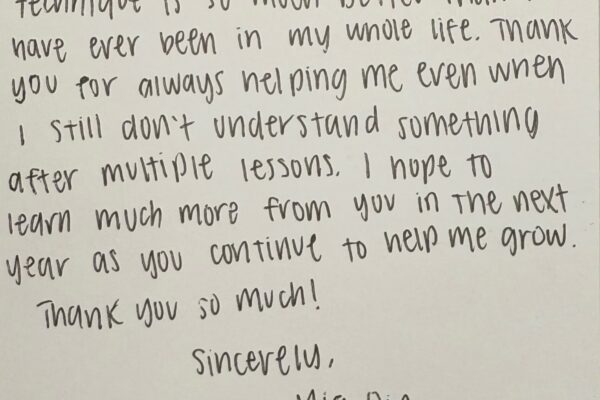 technique is so much better than I
have ever been in my whole life. Thank
you for always helping me even when
I still don't understand something
after multiple lessons. I hope to
learn much more from you in the next
year as you continue to help me grow.
Thank you so much!
Sincerely,